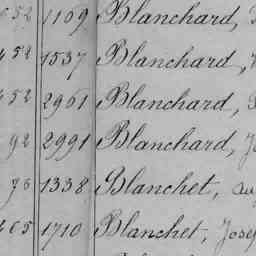 52 1169 Blanchard,
452 1537 Blanchard,
452 2961 Blanchard,
92 2991 Blanchard, J
76 1338 Blanchet, Au
465 1710 Blanchet, Josep